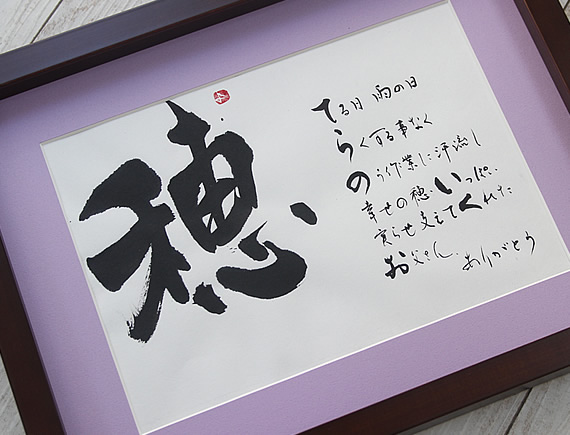 穂
てる日 雨の日
らくする事なく
のう作業に汗流し
幸せの穂いっぱい
実らせ支えてくれた
お父さん ありがとう